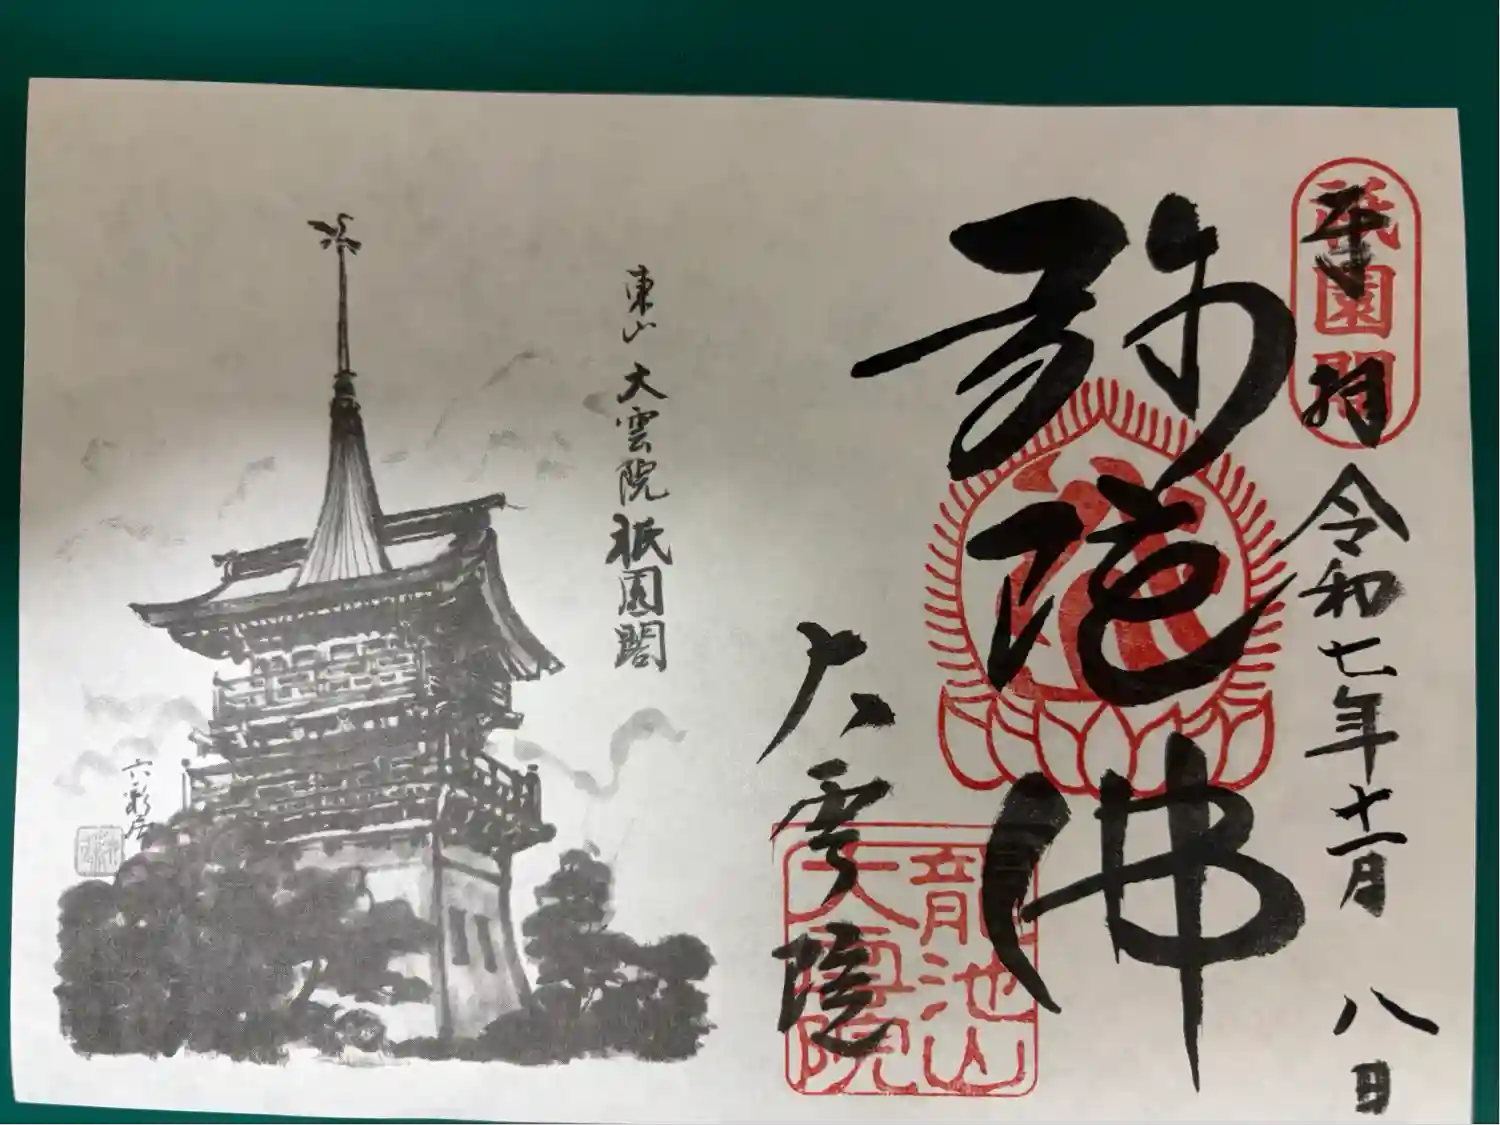 奉拝 令和七年十一月 八日
祇園閣
弥陀佛
大雲院
龍池山
大雲院
東山 大雲院 祇園閣